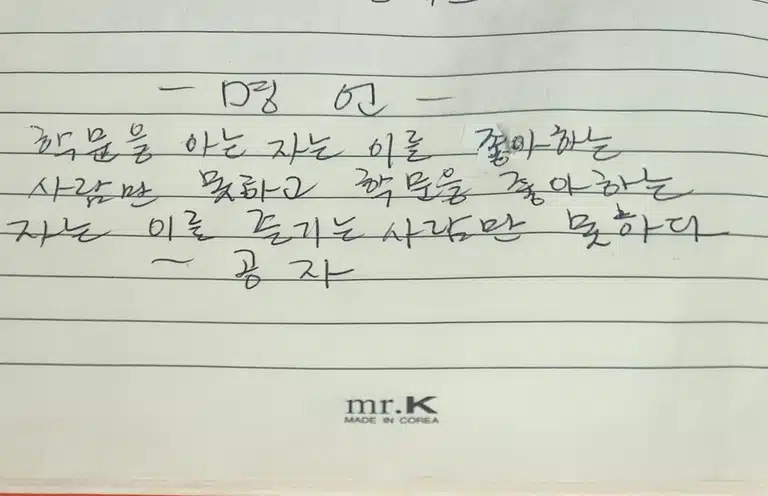 - 명 언 -
학문을 아는 자는 이를 좋아하는
사람만 못하고 학문을 좋아하는
자는 이를 즐기는 사람만 못하다
~ 공 자
mr.K
MADE IN COREA